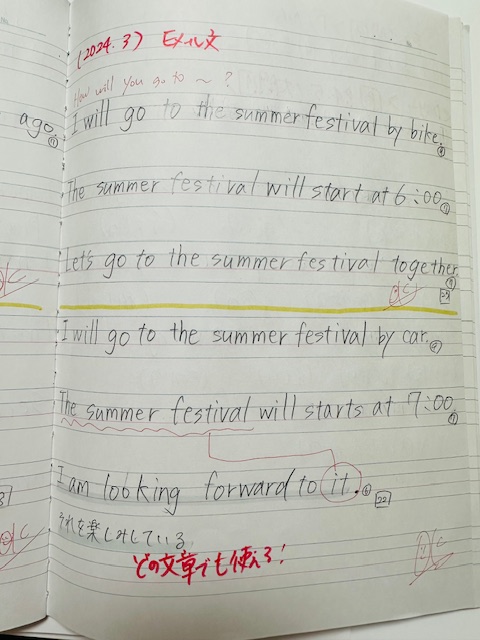 (2024.3) Eメール文
How will you go to ~ ?
ago. ⑪
I will go to the summer festival by bike. ⑨
The summer festival will start at 6:00
Let's go to the summer festival together
OK
I will go to the summer festival by car. ⑨
The summer festival will starts at 7:00
I am looking forward to it. ⑥ 22
それを楽しみしている
どの文章でも使える!